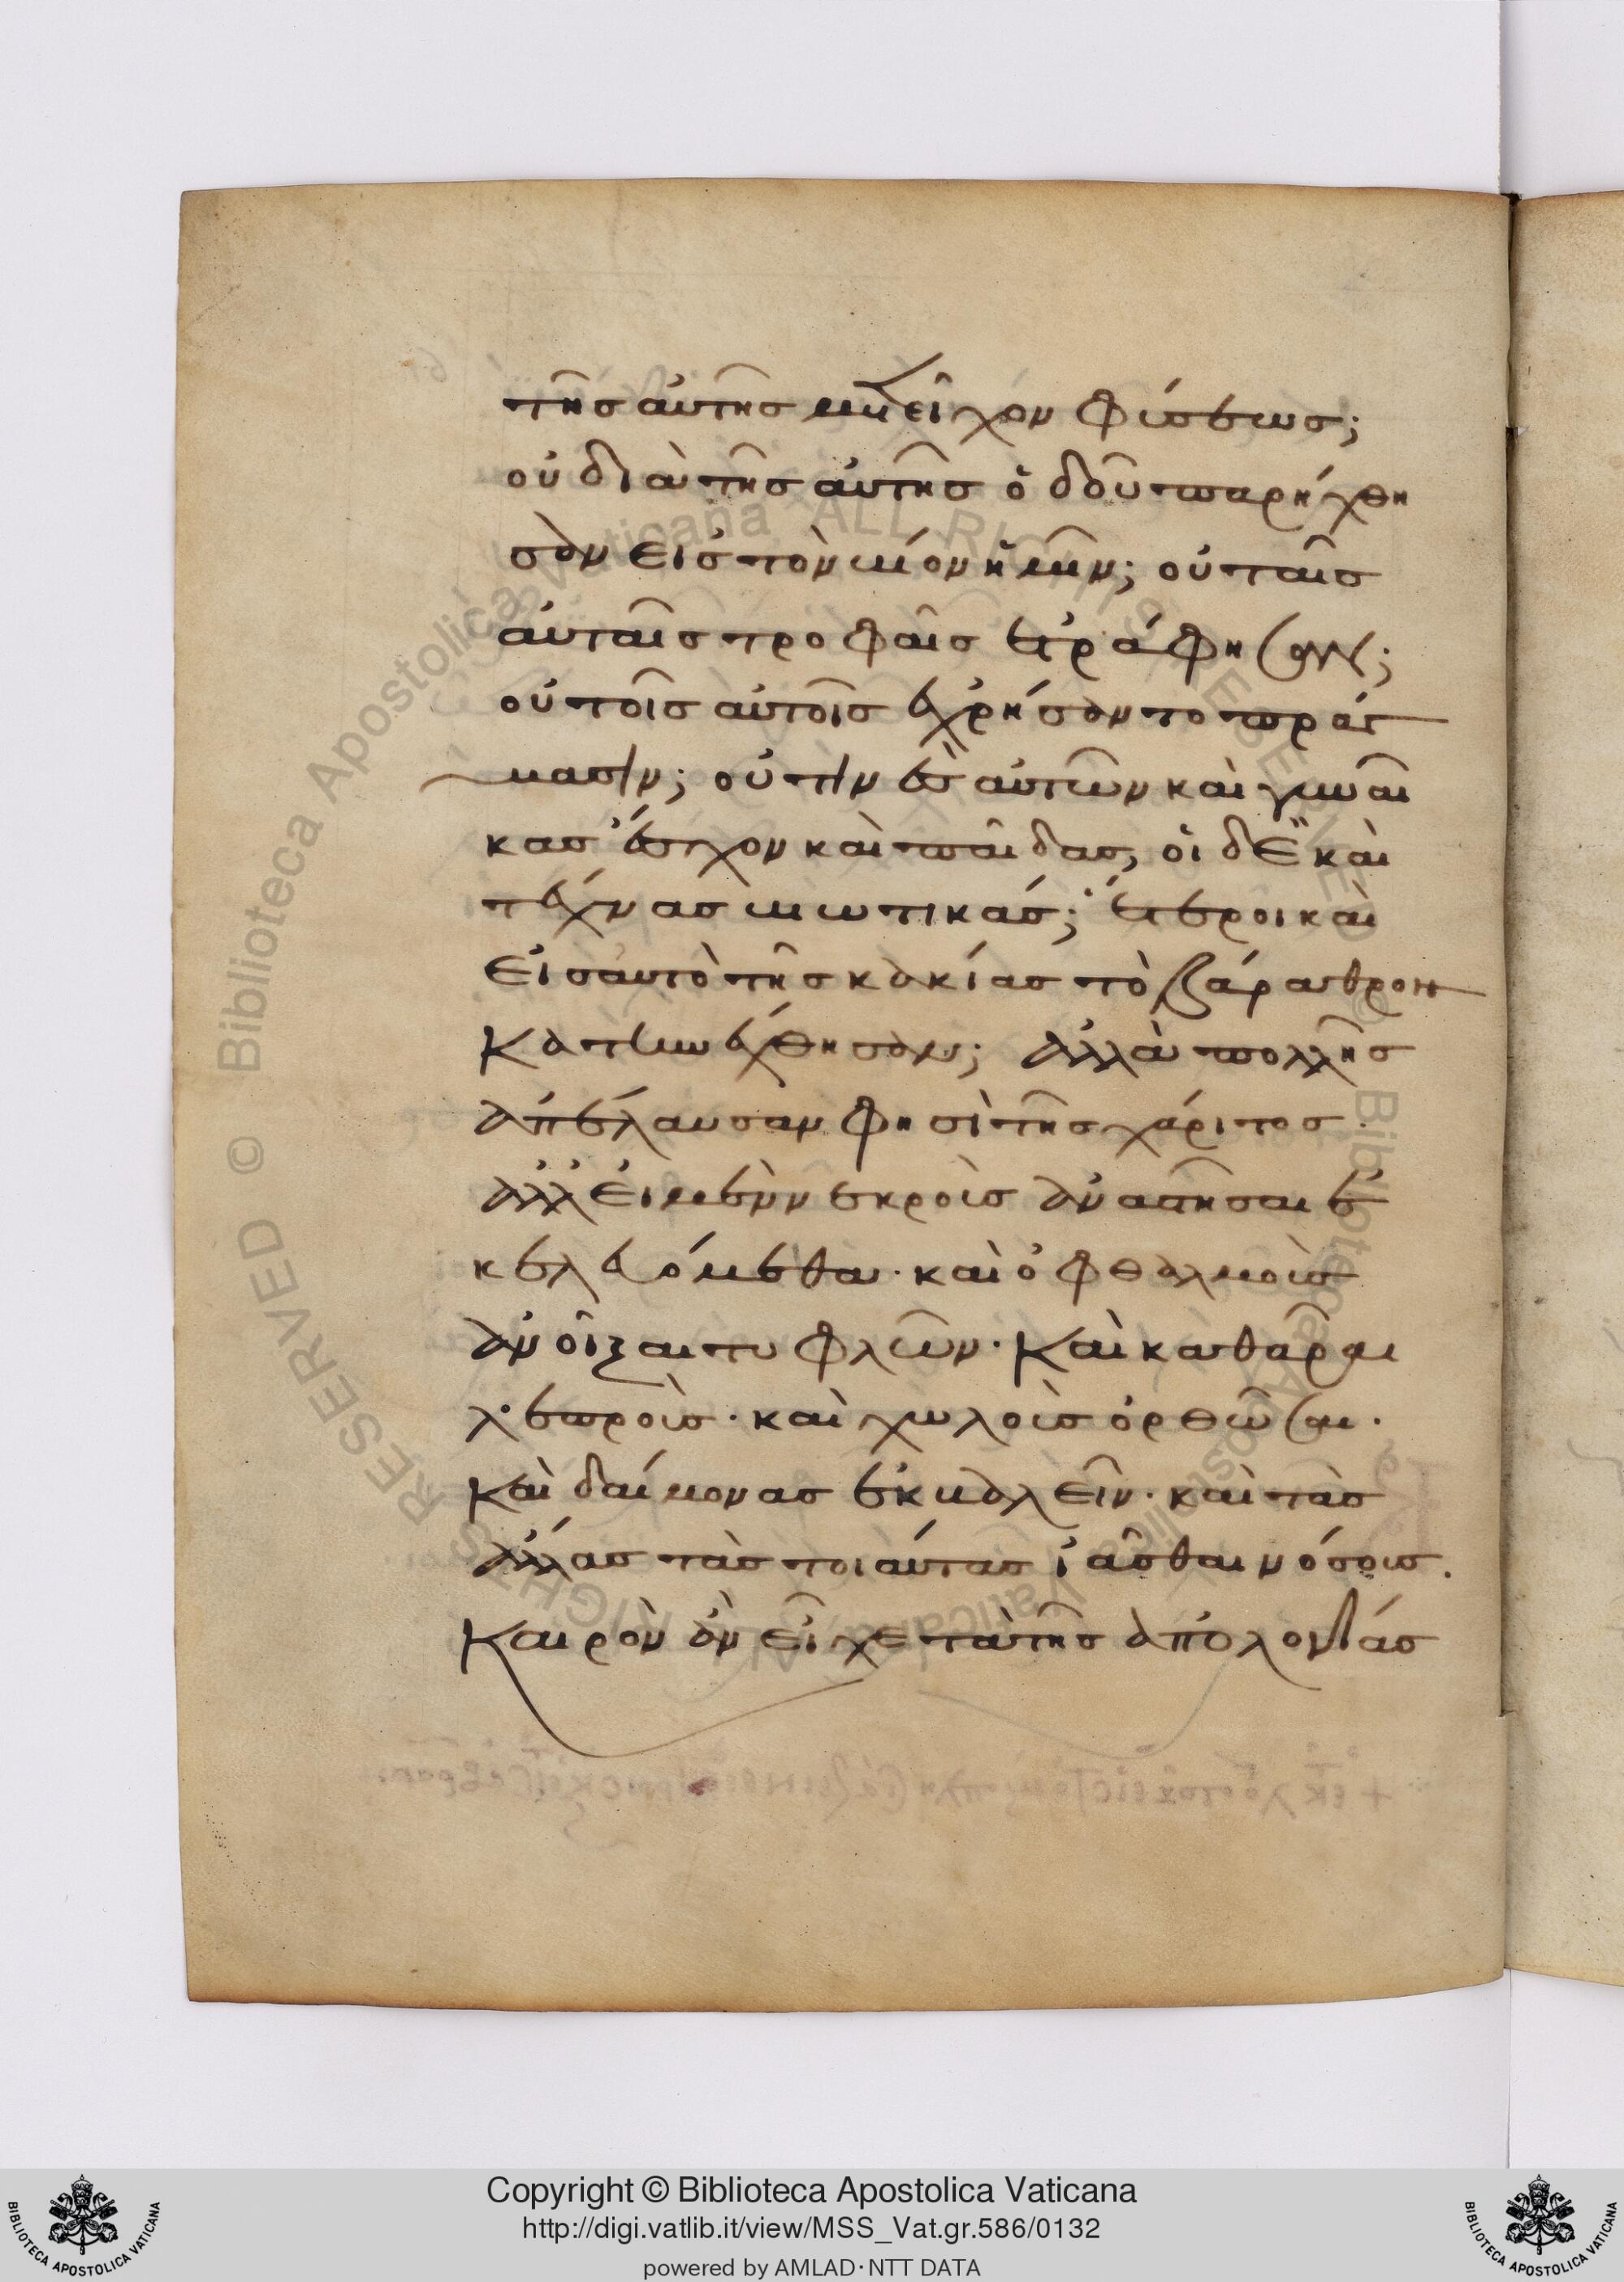 τῆς αὐτῆς μετεῖχον φύσεως;
οὐ διὰ τῆς αὐτῆς ὁδοῦ παρήχθη
σαν εἰς τὸν βίον ἡμῖν; οὐ ταῖς
αὐταῖς τροφαῖς ἐτράφησαν;
οὐ τοῖς αὐτοῖς ἐχρήσαντο πράγ
μασιν; οὐ τὴν ἐπ αὐτῶν καὶ γυναῖ
κας ἔσχον καὶ παῖδας, οἱ δὲ καὶ
τέχνας βιωτικάς; ἕτεροι καὶ
εἰς αὐτὸ τῆς κακίας τὸ βάραθρον
κατηνέχθησαν; ἀλλὰ πολλῆς
ἀπέλαυσαν φησὶ τῆς χάριτος.
ἀλλ εἰ μὲν νεκροὺς ἀναστῆσαι ἐ
κελευόμεθα· καὶ ὀφθαλμοὺς
ἀνοῖξαι τυφλῶν· Καὶ καθᾶραι
λεπροὺς· καὶ χωλοὺς ὀρθῶσαι.
Καὶ δαίμονας ἐκβαλεῖν· καὶ τὰς
ἄλλας τὰς τοιαύτας ἰᾶσθαι νόσους.
Καιρὸν ἂν εἶχε τὰ τῆς ἀπολογίας
Copyright © Biblioteca Apostolica Vaticana
http://digi.vatlib.it/view/MSS_Vat.gr.586/0132
powered by AMLAD·NTT DATA
BIBLIOTECA APOSTOLICA VATICANA
BIBLIOTECA APOSTOLICA VATICANA
© Biblioteca Apostolica Vaticana ALL RIGHTS RESERVED
© Biblioteca Apostolica Vaticana ALL RIGHTS RESERVED